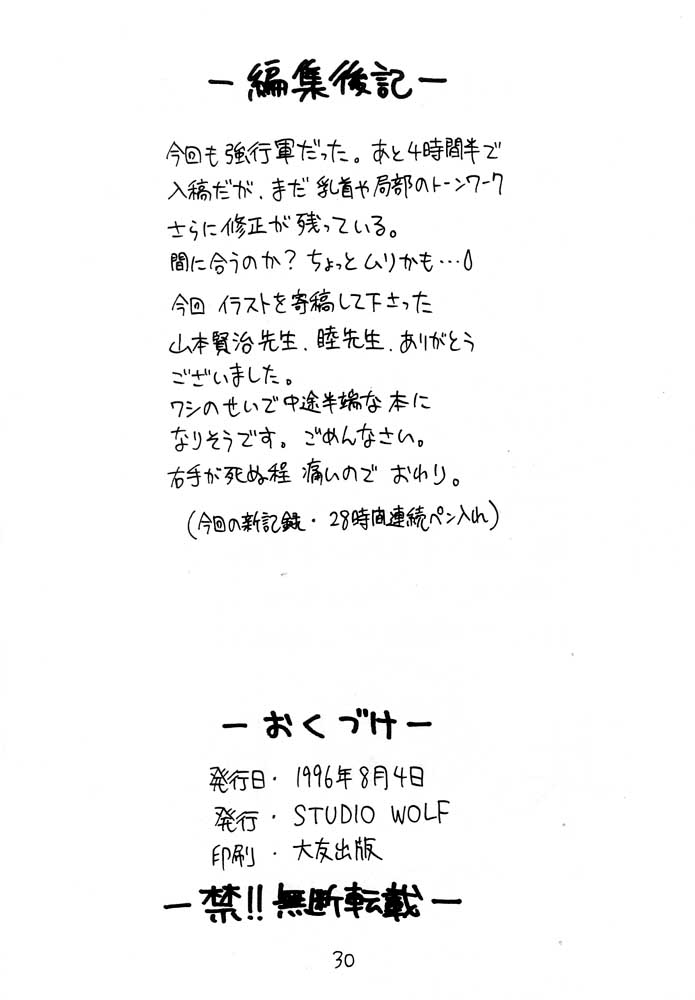 －編集後記－
今回も強行軍だった。あと4時間半で
入稿だが、まだ乳首や局部のトーンワーク
さらに修正が残っている。
間に合うのか？ちょっとムリかも…
今回 イラストを寄稿して下さった
山本賢治先生、睦先生、ありがとう
ございました。
ワシのせいで中途半端な本に
なりそうです。ごめんなさい。
右手が死ぬ程 痛いので おわり。
（今回の新記録・28時間連続ペン入れ）
－おくづけ－
発行日・1996年8月4日
発行・STUDIO WOLF
印刷・大友出版
－禁!!無断転載－
30